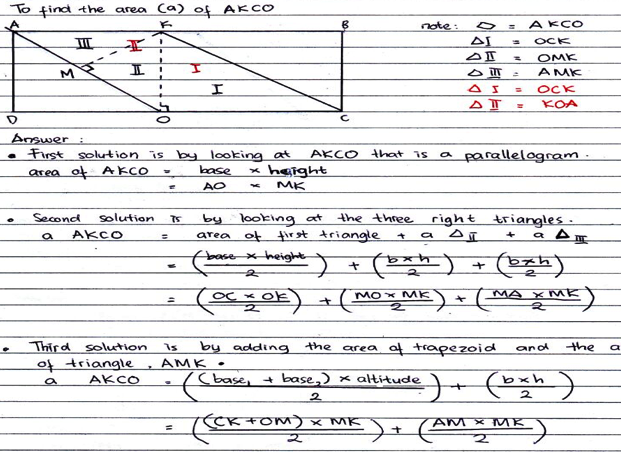 To find the area (a) of AKCO
A K B
note: ▱ = AKCO
III II
△I = OCK
M II I
△II = OMK
I
△III = AMK
△ I = OCK
D O C
△ II = KOA
Answer :
• First solution is by looking at AKCO that is a parallelogram.
area of AKCO = base × height
= AO × MK
• Second solution is by looking at the three right triangles.
a AKCO = area of first triangle + a △II + a △III
= (base × height / 2) + (b×h / 2) + (b×h / 2)
= (OC × OK / 2) + (MO × MK / 2) + (MA × MK / 2)
• Third solution is by adding the area of trapezoid and the a
of triangle, AMK.
a AKCO = ((base₁ + base₂) × altitude / 2) + (b×h / 2)
= ((CK + OM) × MK / 2) + (AM × MK / 2)